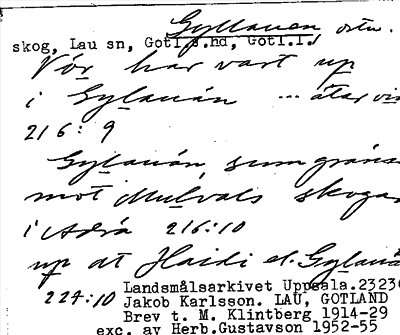 Gyllauan östn.
skog, Lau sn, Gotl.s.hd, Gotl.l.
Vör har vart up
i Gylauán ... åtar vis
216: 9
Gylauán, sum gräns
mot Mulvals skogar
i Adrá 216:10
up at Haidi el. Gylauá
224:10 Landsmålsarkivet Uppsala.2323
Jakob Karlsson. LAU, GOTLAND
Brev t. M. Klintberg 1914-29
exc. av Herb.Gustavson 1952-55